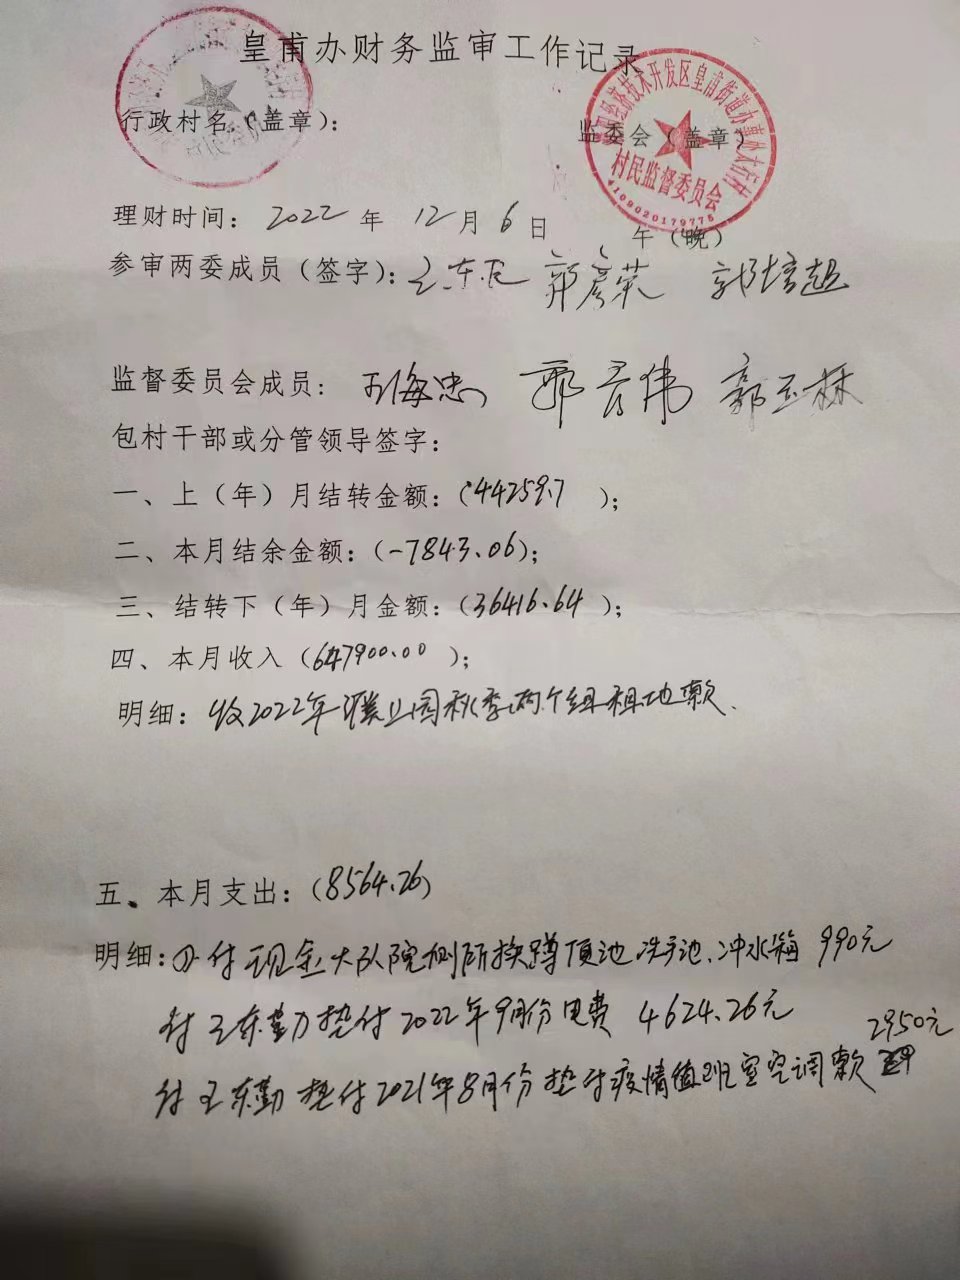 皇甫办财务监审工作记录
行政村名（盖章）：
监委会（盖章）
技术开发区皇甫街道办
村民监督委员会
4109020179775
理财时间：2022年12月6日 午（晚）
参审两委成员（签字）：郭彦荣 郭培超
监督委员会成员：王海忠 郭玉林
包村干部或分管领导签字：
一、上（年）月结转金额：（44259.7 ）；
二、本月结余金额：（-7843.06）；
三、结转下（年）月金额：（36416.64 ）；
四、本月收入（647900.00 ）；
明细：收2022年濮上园秋季两个组租地款.
五、本月支出：（8564.26）
明细：付现金大队院侧所换蹲便池、洗手池、冲水箱 990元
付王东勤垫付2022年9月份电费 4624.26元
付王东勤垫付2021年8月份垫付疫情值班室空调款 2950元